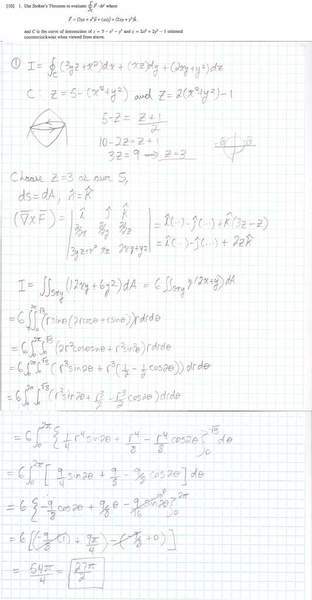 [10] 1. Use Stokes's Theorem to evaluate ∮ F⃗ · dr⃗ where
and C is the curve of intersection of z = 5 − x² − y² and z = 2x² + 2y² − 1 oriented
counterclockwise when viewed from above.
① I = ∮ (3yz+x²)dx + (xz)dy + (2xy+y²)dz
C: z = 5-(x²+y²) and z = 2(x²+y²)-1
5-z = z+1/2
10-2z = z+1
3z = 9 → z=3
Choose z=3 as our S,
ds=dA, n̂=k̂
(∇×F) = | î ĵ k̂ | = î(...)-ĵ(...)+k̂(3z-z)
= î(...)-ĵ(...) + 2zk̂
I = ∬Sxy (12xy+6y²)dA = 6∬Sxy y(2x+y)dA
= 6∫∫ (rsinθ(2rcosθ+rsinθ))rdrdθ
= 6∫∫ (2r²cosθsinθ + r²sin²θ)rdrdθ
= 6∫∫ (r³sin2θ + r³(½-½cos2θ))drdθ
= 6∫∫ (r³sin2θ + r³/2 - r³/2 cos2θ)drdθ
= 6∫ { ¼r⁴sin2θ + r⁴/8 - r⁴/8 cos2θ } dθ
= 6∫ [ 9/4 sin2θ + 9/8 - 9/8 cos2θ ] dθ
= 6 { -9/8 cos2θ + 9/8 θ - 9/16 sin2θ }
= 6 [(-9/8 (1) + 9π/4) - (-9/8 + 0)]
= 54π/4 = 27π/2